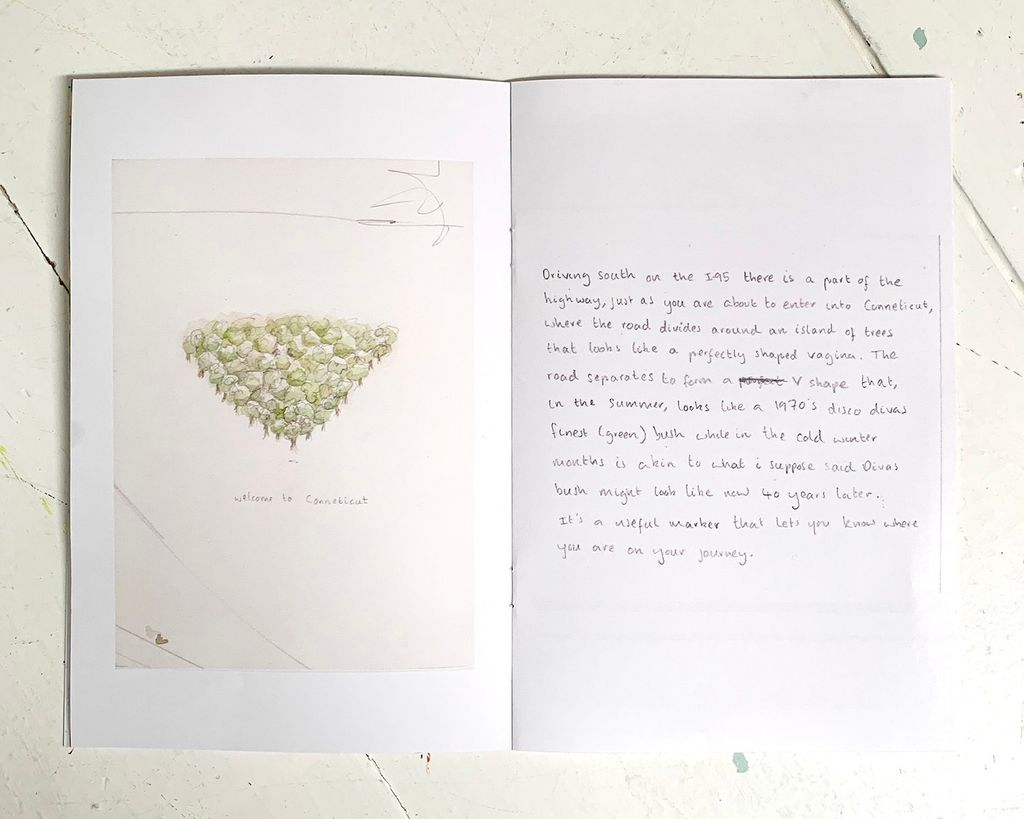 welcome to Conneticut
Driving south on the I95 there is a part of the
highway, just as you are about to enter into Conneticut,
where the road divides around an island of trees
that looks like a perfectly shaped vagina. The
road separates to form a V shape that,
in the summer, looks like a 1970's disco divas
finest (green) bush while in the cold winter
months is akin to what i suppose said Divas
bush might look like now 40 years later.
It's a useful marker that lets you know where
you are on your journey.